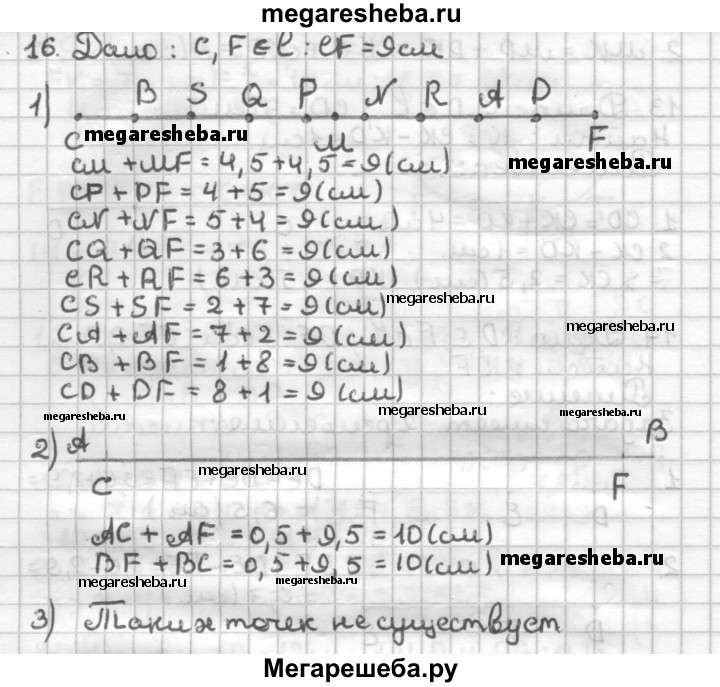 megaresheba.ru
16. Дано: C, F ∈ ℓ : CF = 9 см
1) B S Q P N R A D
C M F
megaresheba.ru
CM + MF = 4,5 + 4,5 = 9 (см)
megaresheba.ru
CP + PF = 4 + 5 = 9 (см)
CN + NF = 5 + 4 = 9 (см)
CQ + QF = 3 + 6 = 9 (см)
CR + RF = 6 + 3 = 9 (см)
megaresheba.ru
CS + SF = 2 + 7 = 9 (см)
megaresheba.ru
CA + AF = 7 + 2 = 9 (см)
CB + BF = 1 + 8 = 9 (см)
CD + DF = 8 + 1 = 9 (см)
megaresheba.ru megaresheba.ru megaresheba.ru
2) A B
megaresheba.ru
C F
AC + AF = 0,5 + 9,5 = 10 (см)
BF + BC = 0,5 + 9,5 = 10 (см)
megaresheba.ru
megaresheba.ru megaresheba.ru
3) Таких точек не существует
Мегарешеба.ру